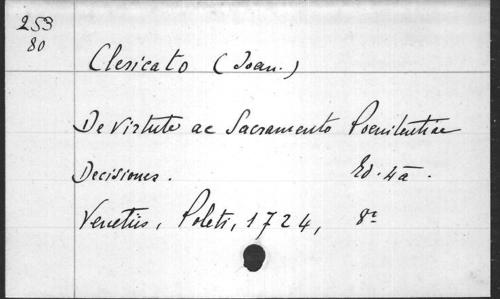 253
80
Clericato (Joan.)
De Virtute ac Sacramento Poenitentiae
Decisiones. Ed. 4a.
Venetiis, Poleti, 1724, 8º